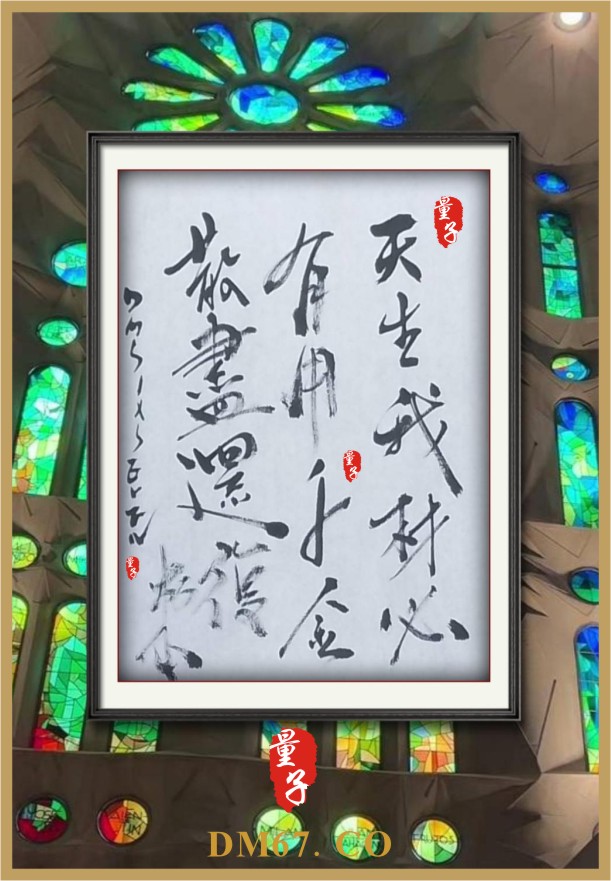 量子
天生我材必
有用千金
量子
散盡還復
DMSIXSEVEN
量子
量子
DM67. CO